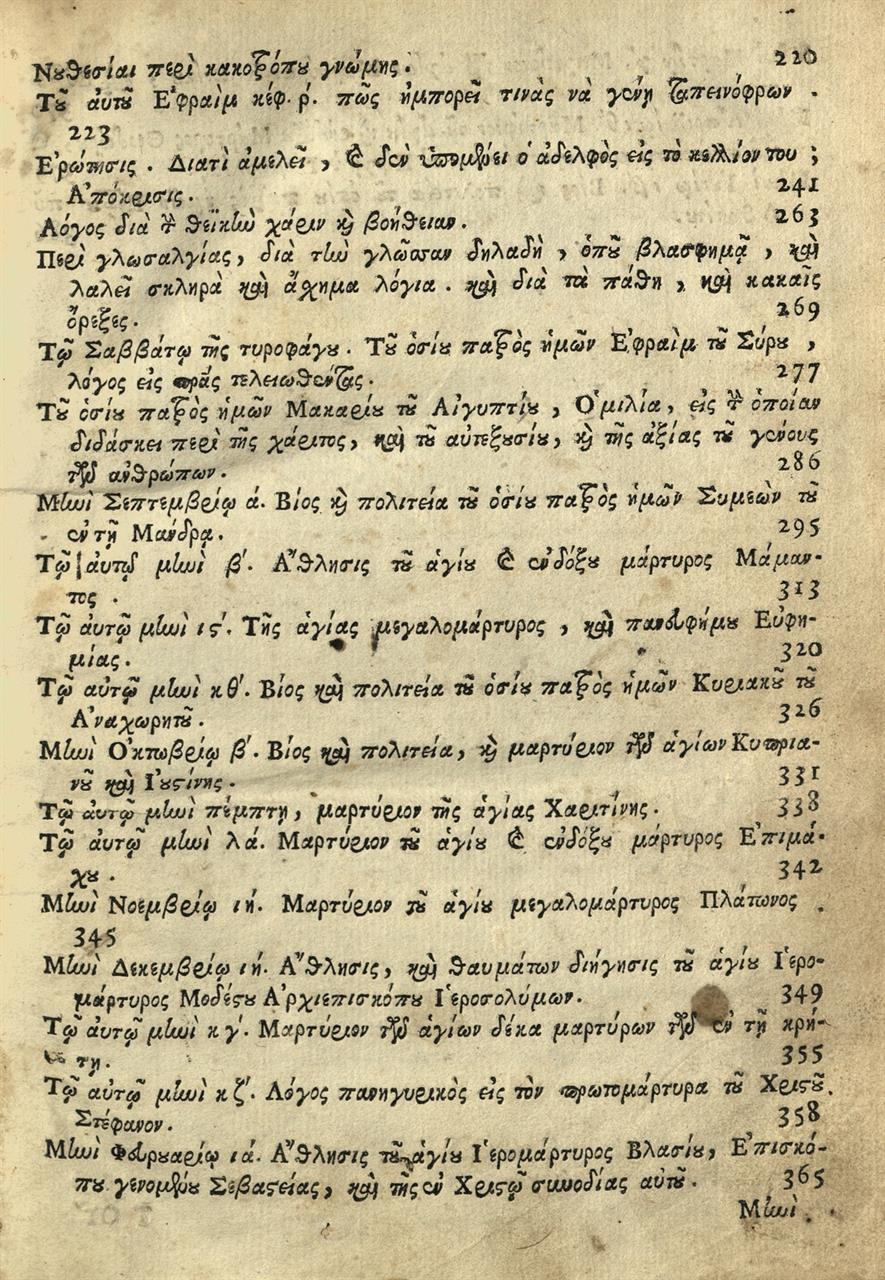 Νουθεσίαι περὶ κακοτρόπου γνώμης. 220
Τοῦ ἀυτοῦ Ε᾿φραὶμ κέφ. ρ΄. πῶς ἠμπορεῖ τινὰς νὰ γένῃ ταπεινόφρων.
223
Ε᾿ρώτησις. Διατὶ ἀμελεῖ, καὶ δὲν ὑπομένει ὁ ἀδελφὸς εἰς τὸ κελλίον του;
Α᾿πόκρισις. 241
Λόγος διὰ τὴν θεϊκὴν χάριν καὶ βοήθειαν. 263
Περὶ γλωσαλγίας, διὰ τὴν γλῶσσαν δηλαδὴ, ὁποῦ βλασφημᾷ, καὶ
λαλεῖ σκληρὰ καὶ ἄχημα λόγια. καὶ διὰ τὰ πάθη, καὶ κακαῖς
ὄρεξες. 269
Τῷ Σαββάτῳ τῆς τυροφάγου. Τοῦ ὁσίου πατρὸς ἡμῶν Ε᾿φραὶμ τοῦ Σύρου,
λόγος εἰς πρᾶς τελειωθέντας. 277
Τοῦ ὁσίου πατρὸς ἡμῶν Μακαρίου τοῦ Αἰγυπτίου, Ο῾μιλία, εἰς τὴν ὁποίαν
διδάσκει περὶ τῆς χάριτος, καὶ τοῦ αὐτεξουσίου, καὶ τῆς ἀξίας τοῦ γένους
τῶν ἀνθρώπων. 286
Μηνὶ Σεπτεμβρίῳ ά. Βίος καὶ πολιτεία τοῦ ὁσίου πατρὸς ἡμῶν Συμεὼν τοῦ
ἐν τῇ Μάνδρᾳ. 295
Τῷ ἀυτῷ μηνὶ β΄. Α῎θλησις τοῦ ἁγίου καὶ ἐνδόξου μάρτυρος Μάμαν-
τος. 313
Τῷ ἀυτῷ μηνὶ ις΄. Τῆς ἁγίας μεγαλομάρτυρος, καὶ πανευφήμου Εὐφη-
μίας. 320
Τῷ αὐτῷ μηνὶ κθ΄. Βίος καὶ πολιτεία τοῦ ὁσίου πατρὸς ἡμῶν Κυριακοῦ τοῦ
Α᾿ναχωρητοῦ. 326
Μηνὶ Ο᾿κτωβρίῳ β΄. Βίος καὶ πολιτεία, καὶ μαρτύριον τῶν ἁγίων Κυπρια-
νοῦ καὶ Ι᾿ουστίνης. 331
Τῷ ἀυτῷ μηνὶ πέμπτῃ, μαρτύριον τῆς ἁγίας Χαριτίνης. 338
Τῷ ἀυτῷ μηνὶ λά. Μαρτύριον τοῦ ἁγίου καὶ ἐνδόξου μάρτυρος Ε᾿πιμά-
χου. 342
Μηνὶ Νοεμβρίῳ ιή. Μαρτύριον τοῦ ἁγίου μεγαλομάρτυρος Πλάτωνος.
345
Μηνὶ Δεκεμβρίῳ ιή. Α῎θλησις, καὶ θαυμάτων διήγησις τοῦ ἁγίου Ι῾ερο-
μάρτυρος Μοδέστου Α᾿ρχιεπισκόπου Ι῾εροσολύμων. 349
Τῷ ἀυτῷ μηνὶ κγ΄. Μαρτύριον τῶν ἁγίων δέκα μαρτύρων τῶν ἐν τῇ κρή-
τῃ. 355
Τῷ αὐτῷ μηνὶ κζ΄. Λόγος πανηγυρικὸς εἰς τὸν πρωτομάρτυρα τοῦ Χριστοῦ.
Στέφανον. 358
Μηνὶ Φευρουαρίῳ ιά. Α῎θλησις τοῦ ἁγίου Ι῾ερομάρτυρος Βλασίου, Ε᾿πισκό-
που γενομένου Σεβαστείας, καὶ τῆς ἐν Χριστῷ συνοδίας αὐτοῦ. 365
Μηνὶ